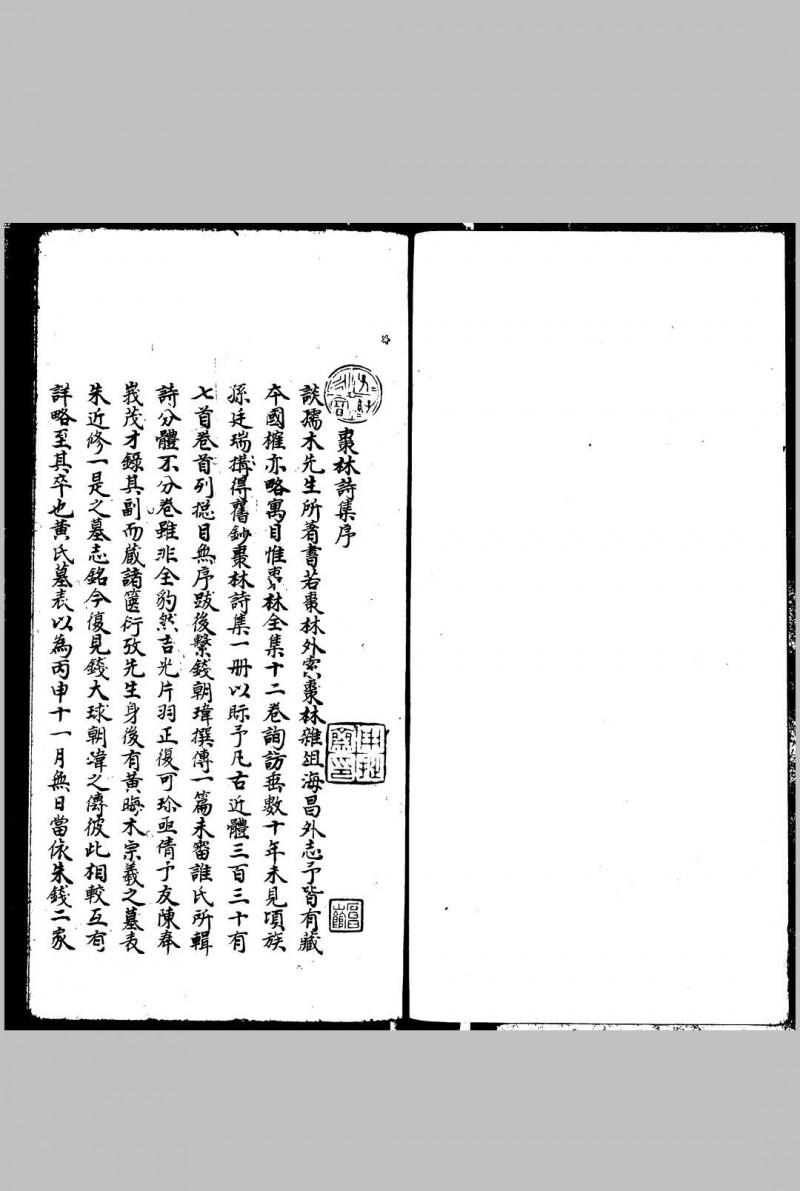 棗林詩集序
談孺木先生所著書若棗林外索棗林雜俎海昌外志予皆有藏
本國榷亦略寓目惟棗林全集十二卷詢訪垂數十年未見頃族
孫廷瑞搆得舊鈔棗林詩集一册以眎予凡古近體三百三十有
七首卷首列總目無序跋後繫錢朝瑋撰傳一篇未審誰氏所輯
詩分體不分卷雖非全豹然吉光片羽正復可珍亟倩予友陳奉
峩茂才錄其副而藏諸篋衍攷先生身後有黃晦木宗羲之墓表
朱近修一是之墓志銘今復見錢大球朝瑋之傳彼此相較互有
詳略至其卒也黃氏墓表以為丙申十一月無日當依朱錢二家